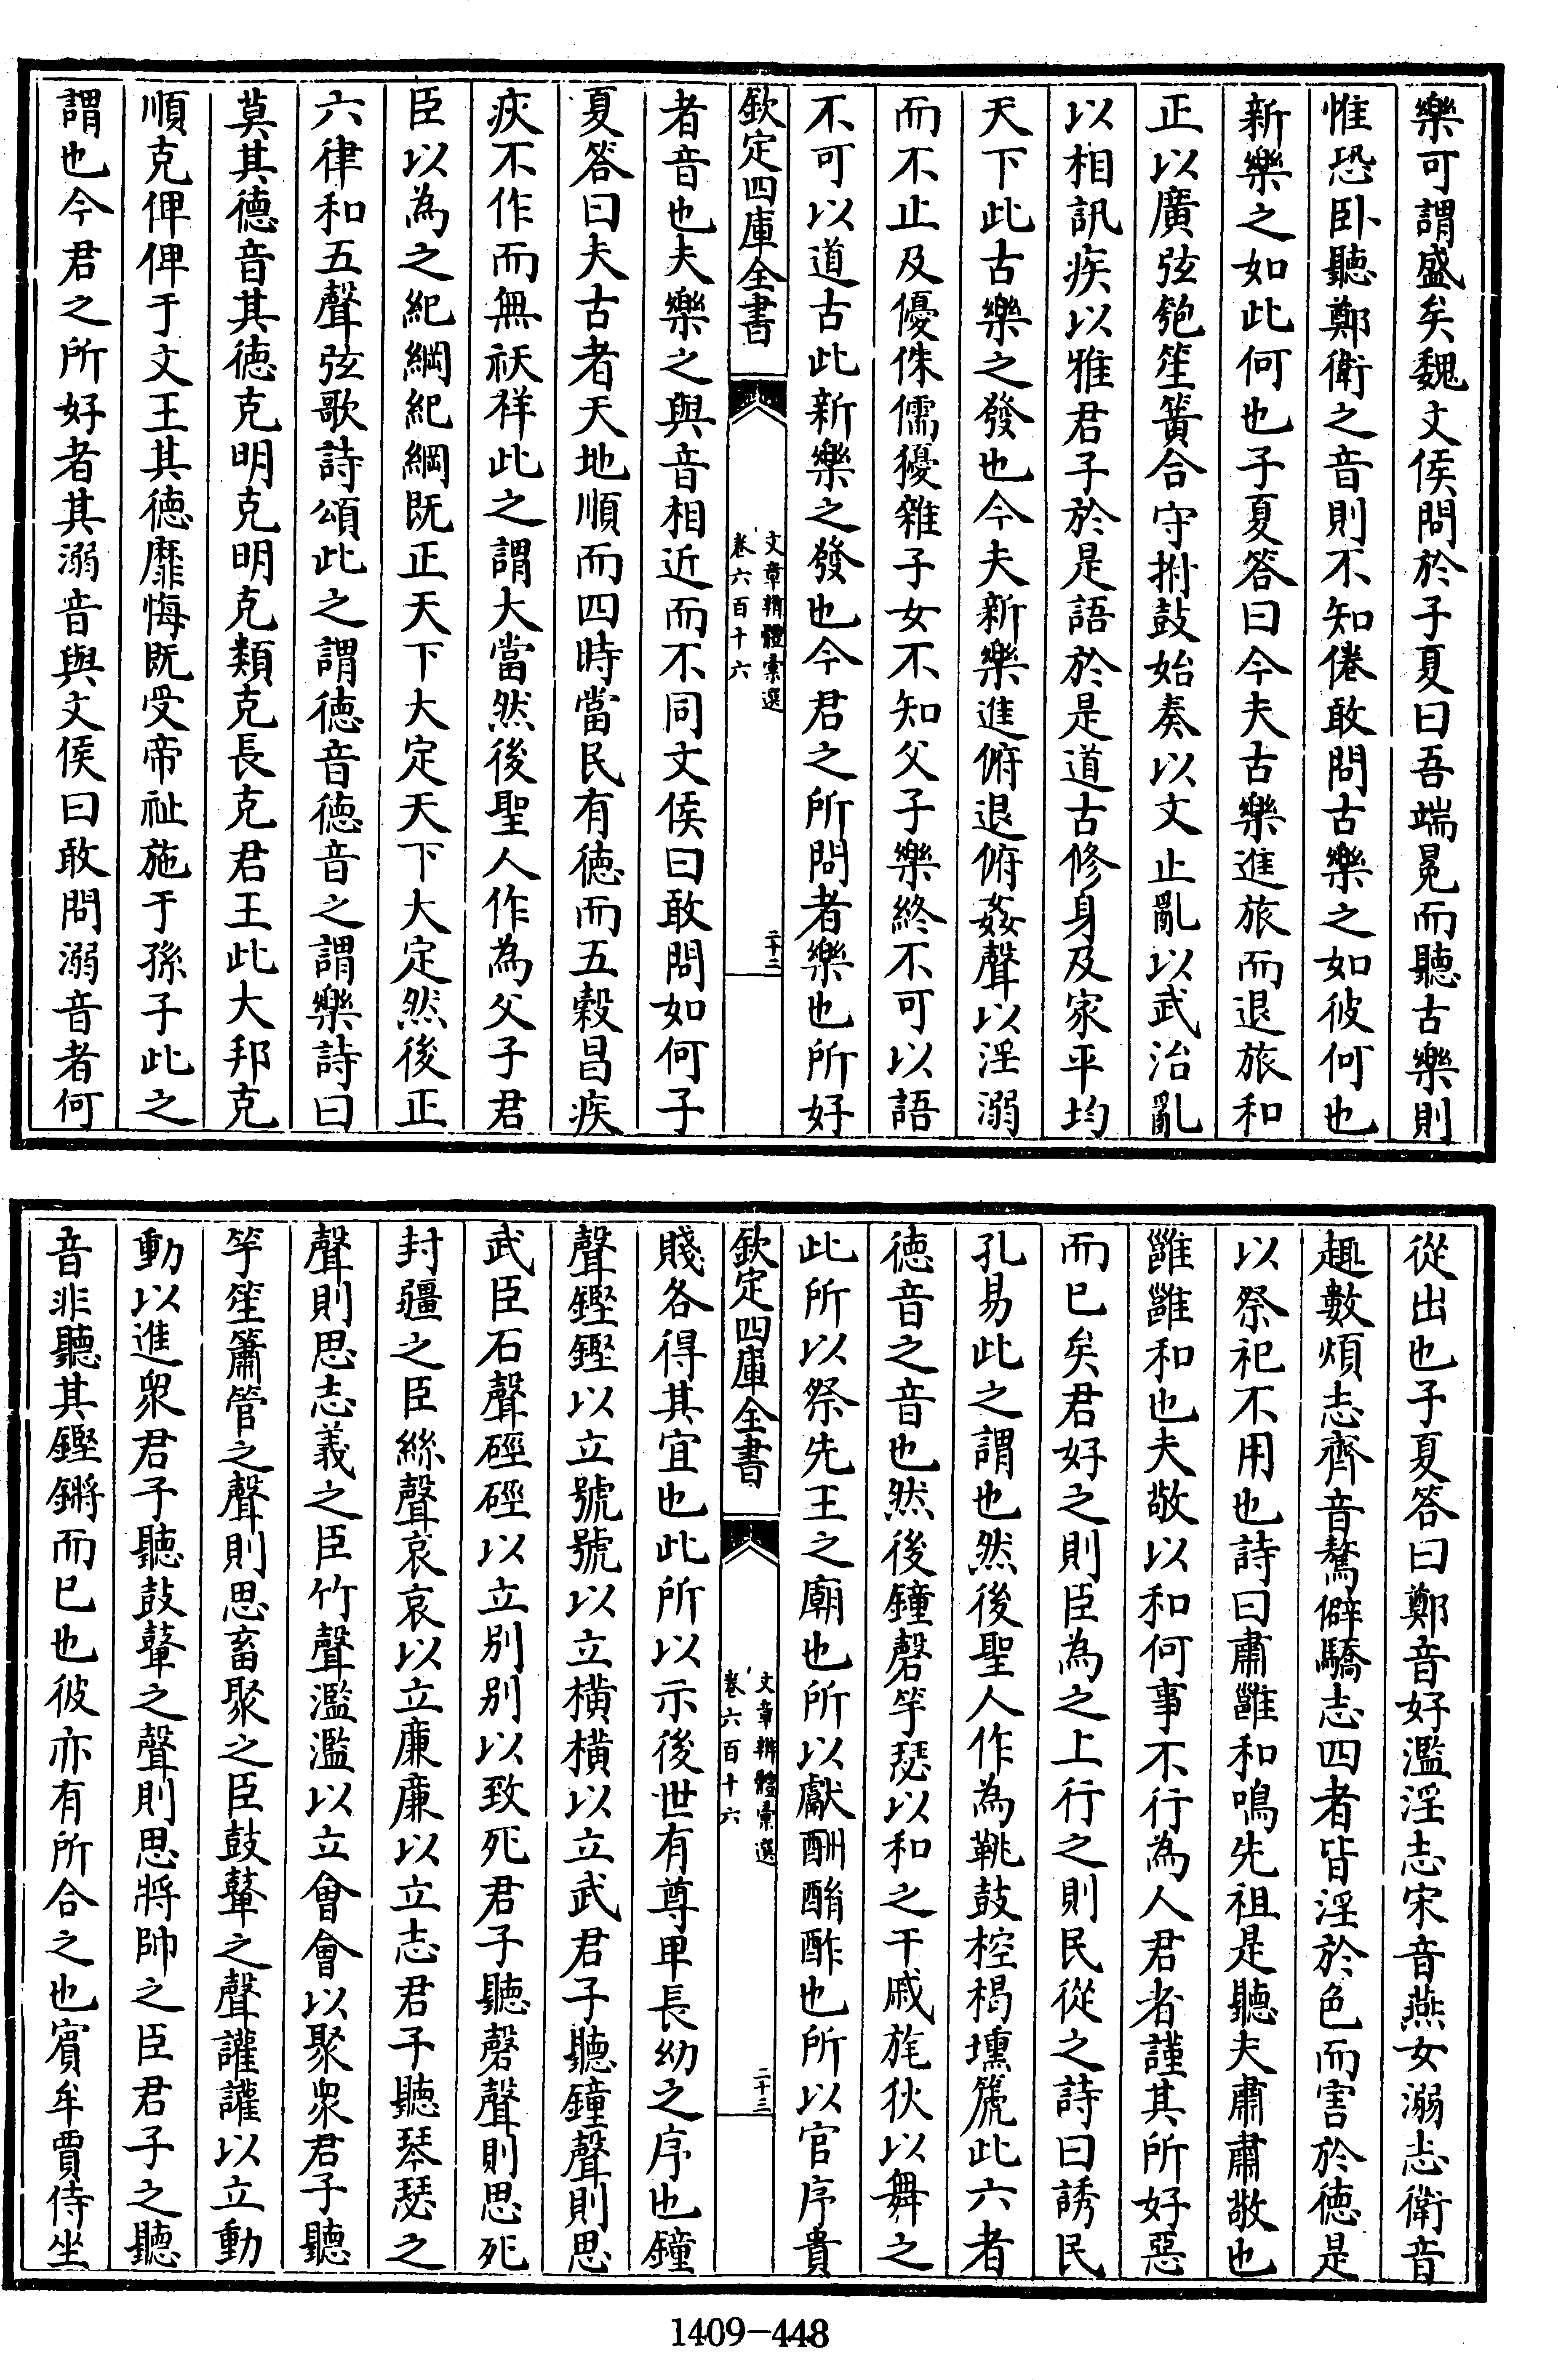 樂可謂盛矣魏文侯問於子夏曰吾端冕而聽古樂則
惟恐卧聽鄭衛之音則不知倦敢問古樂之如彼何也
新樂之如此何也子夏答曰今夫古樂進旅而退旅和
正以廣弦匏笙簧合守拊鼓始奏以文止亂以武治亂
以相訊疾以雅君子於是語於是道古修身及家平均
天下此古樂之發也今夫新樂進俯退俯姦聲以淫溺
而不止及優侏儒獶雜子女不知父子樂終不可以語
不可以道古此新樂之發也今君之所問者樂也所好
欽定四庫全書
文章辨體彙選
卷六百十六
二十二
者音也夫樂之與音相近而不同文侯曰敢問如何子
夏答曰夫古者天地順而四時當民有德而五穀昌疾
疢不作而無祅祥此之謂大當然後聖人作為父子君
臣以為之紀綱紀綱既正天下大定天下大定然後正
六律和五聲弦歌詩頌此之謂德音德音之謂樂詩曰
莫其德音其德克明克明克類克長克君王此大邦克
順克俾俾于文王其德靡悔既受帝祉施于孫子此之
謂也今君之所好者其溺音與文侯曰敢問溺音者何
從出也子夏答曰鄭音好濫淫志宋音燕女溺志衛音
趣數煩志齊音驁僻驕志四者皆淫於色而害於德是
以祭祀不用也詩曰肅雝和鳴先祖是聽夫肅肅敬也
雝雝和也夫敬以和何事不行為人君者謹其所好惡
而已矣君好之則臣為之上行之則民從之詩曰誘民
孔易此之謂也然後聖人作為鞉鼓椌楬壎篪此六者
德音之音也然後鐘磬竽瑟以和之干戚旄狄以舞之
此所以祭先王之廟也所以獻酬酳酢也所以官序貴
欽定四庫全書
文章辨體彙選
卷六百十六
二十三
賤各得其宜也此所以示後世有尊卑長幼之序也鐘
聲鏗鏗以立號號以立橫橫以立武君子聽鐘聲則思
武臣石聲硜硜以立别别以致死君子聽磬聲則思死
封疆之臣絲聲哀哀以立廉廉以立志君子聽琴瑟之
聲則思志義之臣竹聲濫濫以立會會以聚衆君子聽
竽笙簫管之聲則思畜聚之臣鼓鼙之聲讙讙以立動
動以進衆君子聽鼓鼙之聲則思將帥之臣君子之聽
音非聽其鏗鏘而已也彼亦有所合之也賓牟賈侍坐
1409-448